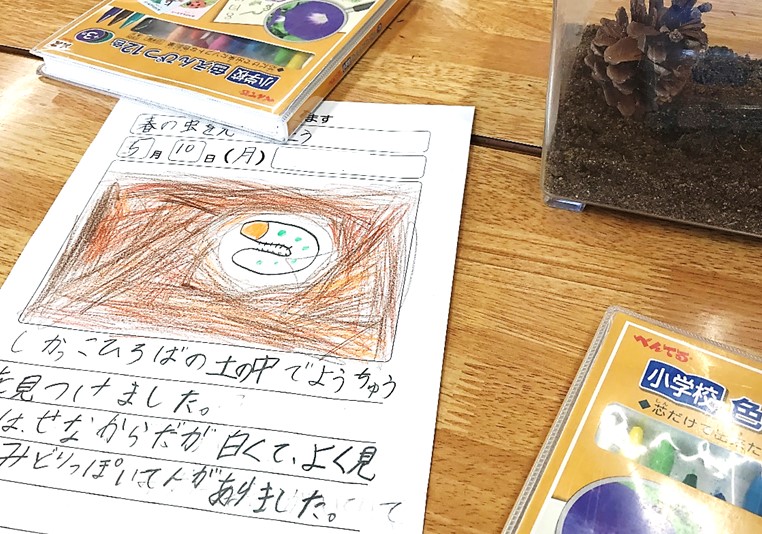 小学校 色えんぴつ 12色
ぺんてる
春の虫を
ます
う
5月10日(月)
しかっこひろばの土の中でようちゅう
を見つけました。
は、せなからだが白くて、よく見
みどりっぽいてんがありました。
ぺんてる
小学校 色
◆芯だけで